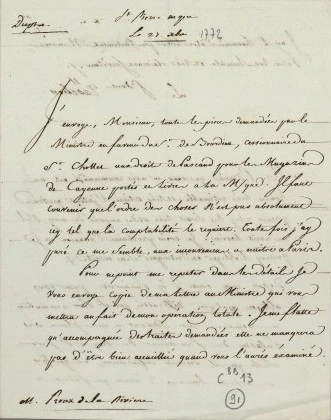 Duplta
St Pierre mque
Le 22 xbre 1772
J'envoye, Monsieur, toute les piece demandées par le
Ministre en faveur du Sr de Dourdieu, cessionnaire du
Sr Chollet aux droit de Pascaud pour le Magazin
de Cayenne portés et livrés a la Mque. Il faut
convenir que l'ordre des choses n'est pas absolument
icy tel que la comptabilité le requiert. Toute fois j'ay
paré ce me semble, aux inconveniens a naitre a Paris.
Pour ne point me repeter dans les détail Je
vous envoye copie de ma lettre au Ministre qui vous
mettra au fait de mon operation totale. Je me flatte
qu'accompagnée des traites demandées elle ne manquera
pas d'être bien accueillie quand vous l'aurés éxaminé.
M. Proux de la Riviere
C 8B 13
91